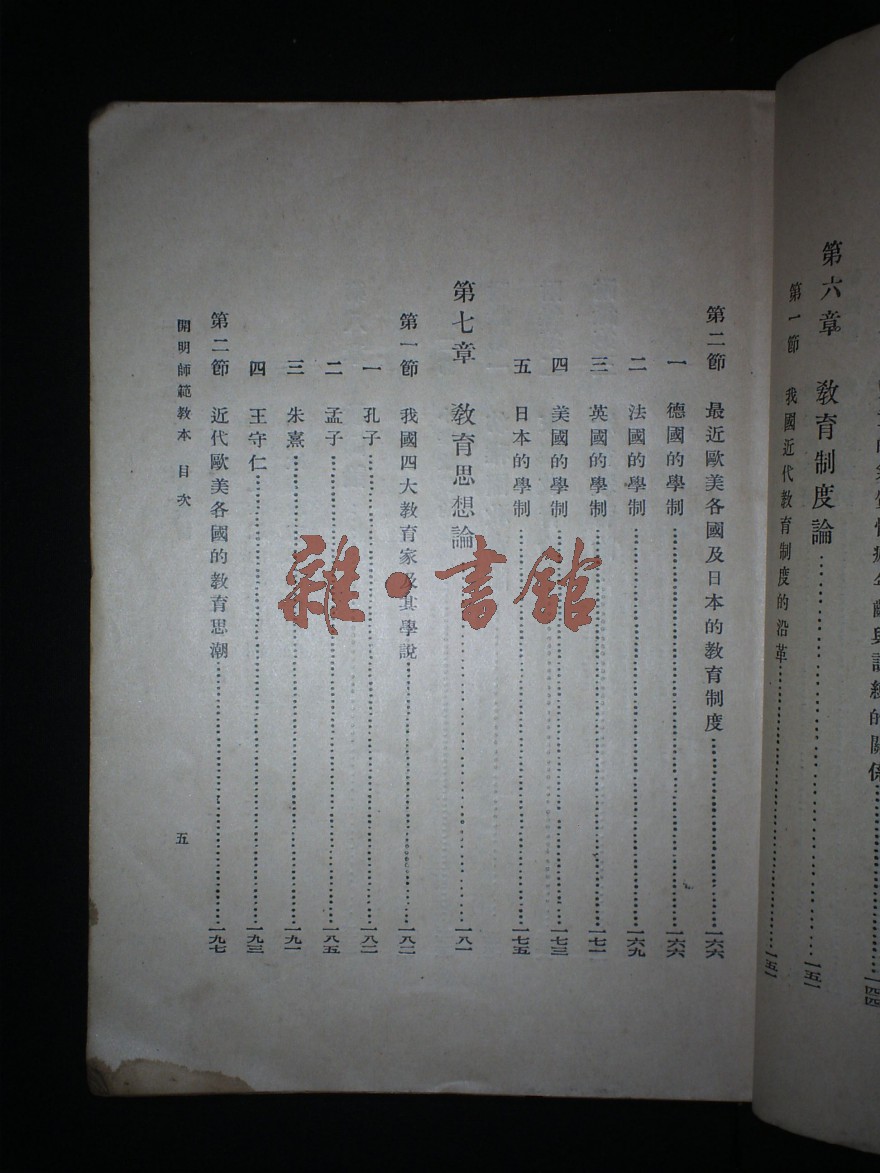 的關係……一四四
第六章 教育制度論……一五一
第一節 我國近代教育制度的沿革……一五一
第二節 最近歐美各國及日本的教育制度……一六六
一 德國的學制……一六六
二 法國的學制……一六九
三 英國的學制……一七一
四 美國的學制……一七三
五 日本的學制……一七五
第七章 教育思想論……一八一
第一節 我國四大教育家及其學說……一八二
一 孔子……一八二
二 孟子……一八五
三 朱熹……一九一
四 王守仁……一九三
第二節 近代歐美各國的教育思潮……一九七
開明師範教本 目次
五
雜·書館